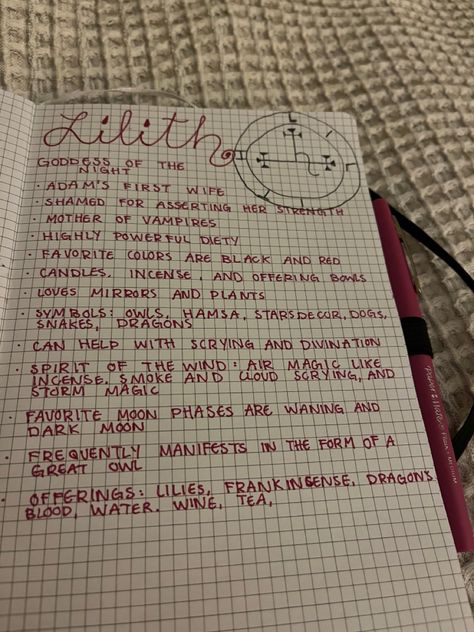 Lilith
GODDESS OF THE
NIGHT
· ADAM'S FIRST WIFE
· SHAMED FOR ASSERTING HER STRENGTH
· MOTHER OF VAMPIRES
· HIGHLY POWERFUL DIETY
· FAVORITE COLORS ARE BLACK AND RED
· CANDLES, INCENSE, AND OFFERING BOWLS
· LOVES MIRRORS AND PLANTS
· SYMBOLS: OWLS, HAMSA, STARS DECOR, DOGS,
SNAKES, DRAGONS
· CAN HELP WITH SCRYING AND DIVINATION
· SPIRIT OF THE WIND: AIR MAGIC LIKE
INCENSE, SMOKE AND CLOUD SCRYING, AND
STORM MAGIC
· FAVORITE MOON PHASES ARE WANING AND
DARK MOON
· FREQUENTLY MANIFESTS IN THE FORM OF A
GREAT OWL
· OFFERINGS: LILIES, FRANKINSENSE, DRAGONS
BLOOD, WATER. WINE, TEA,